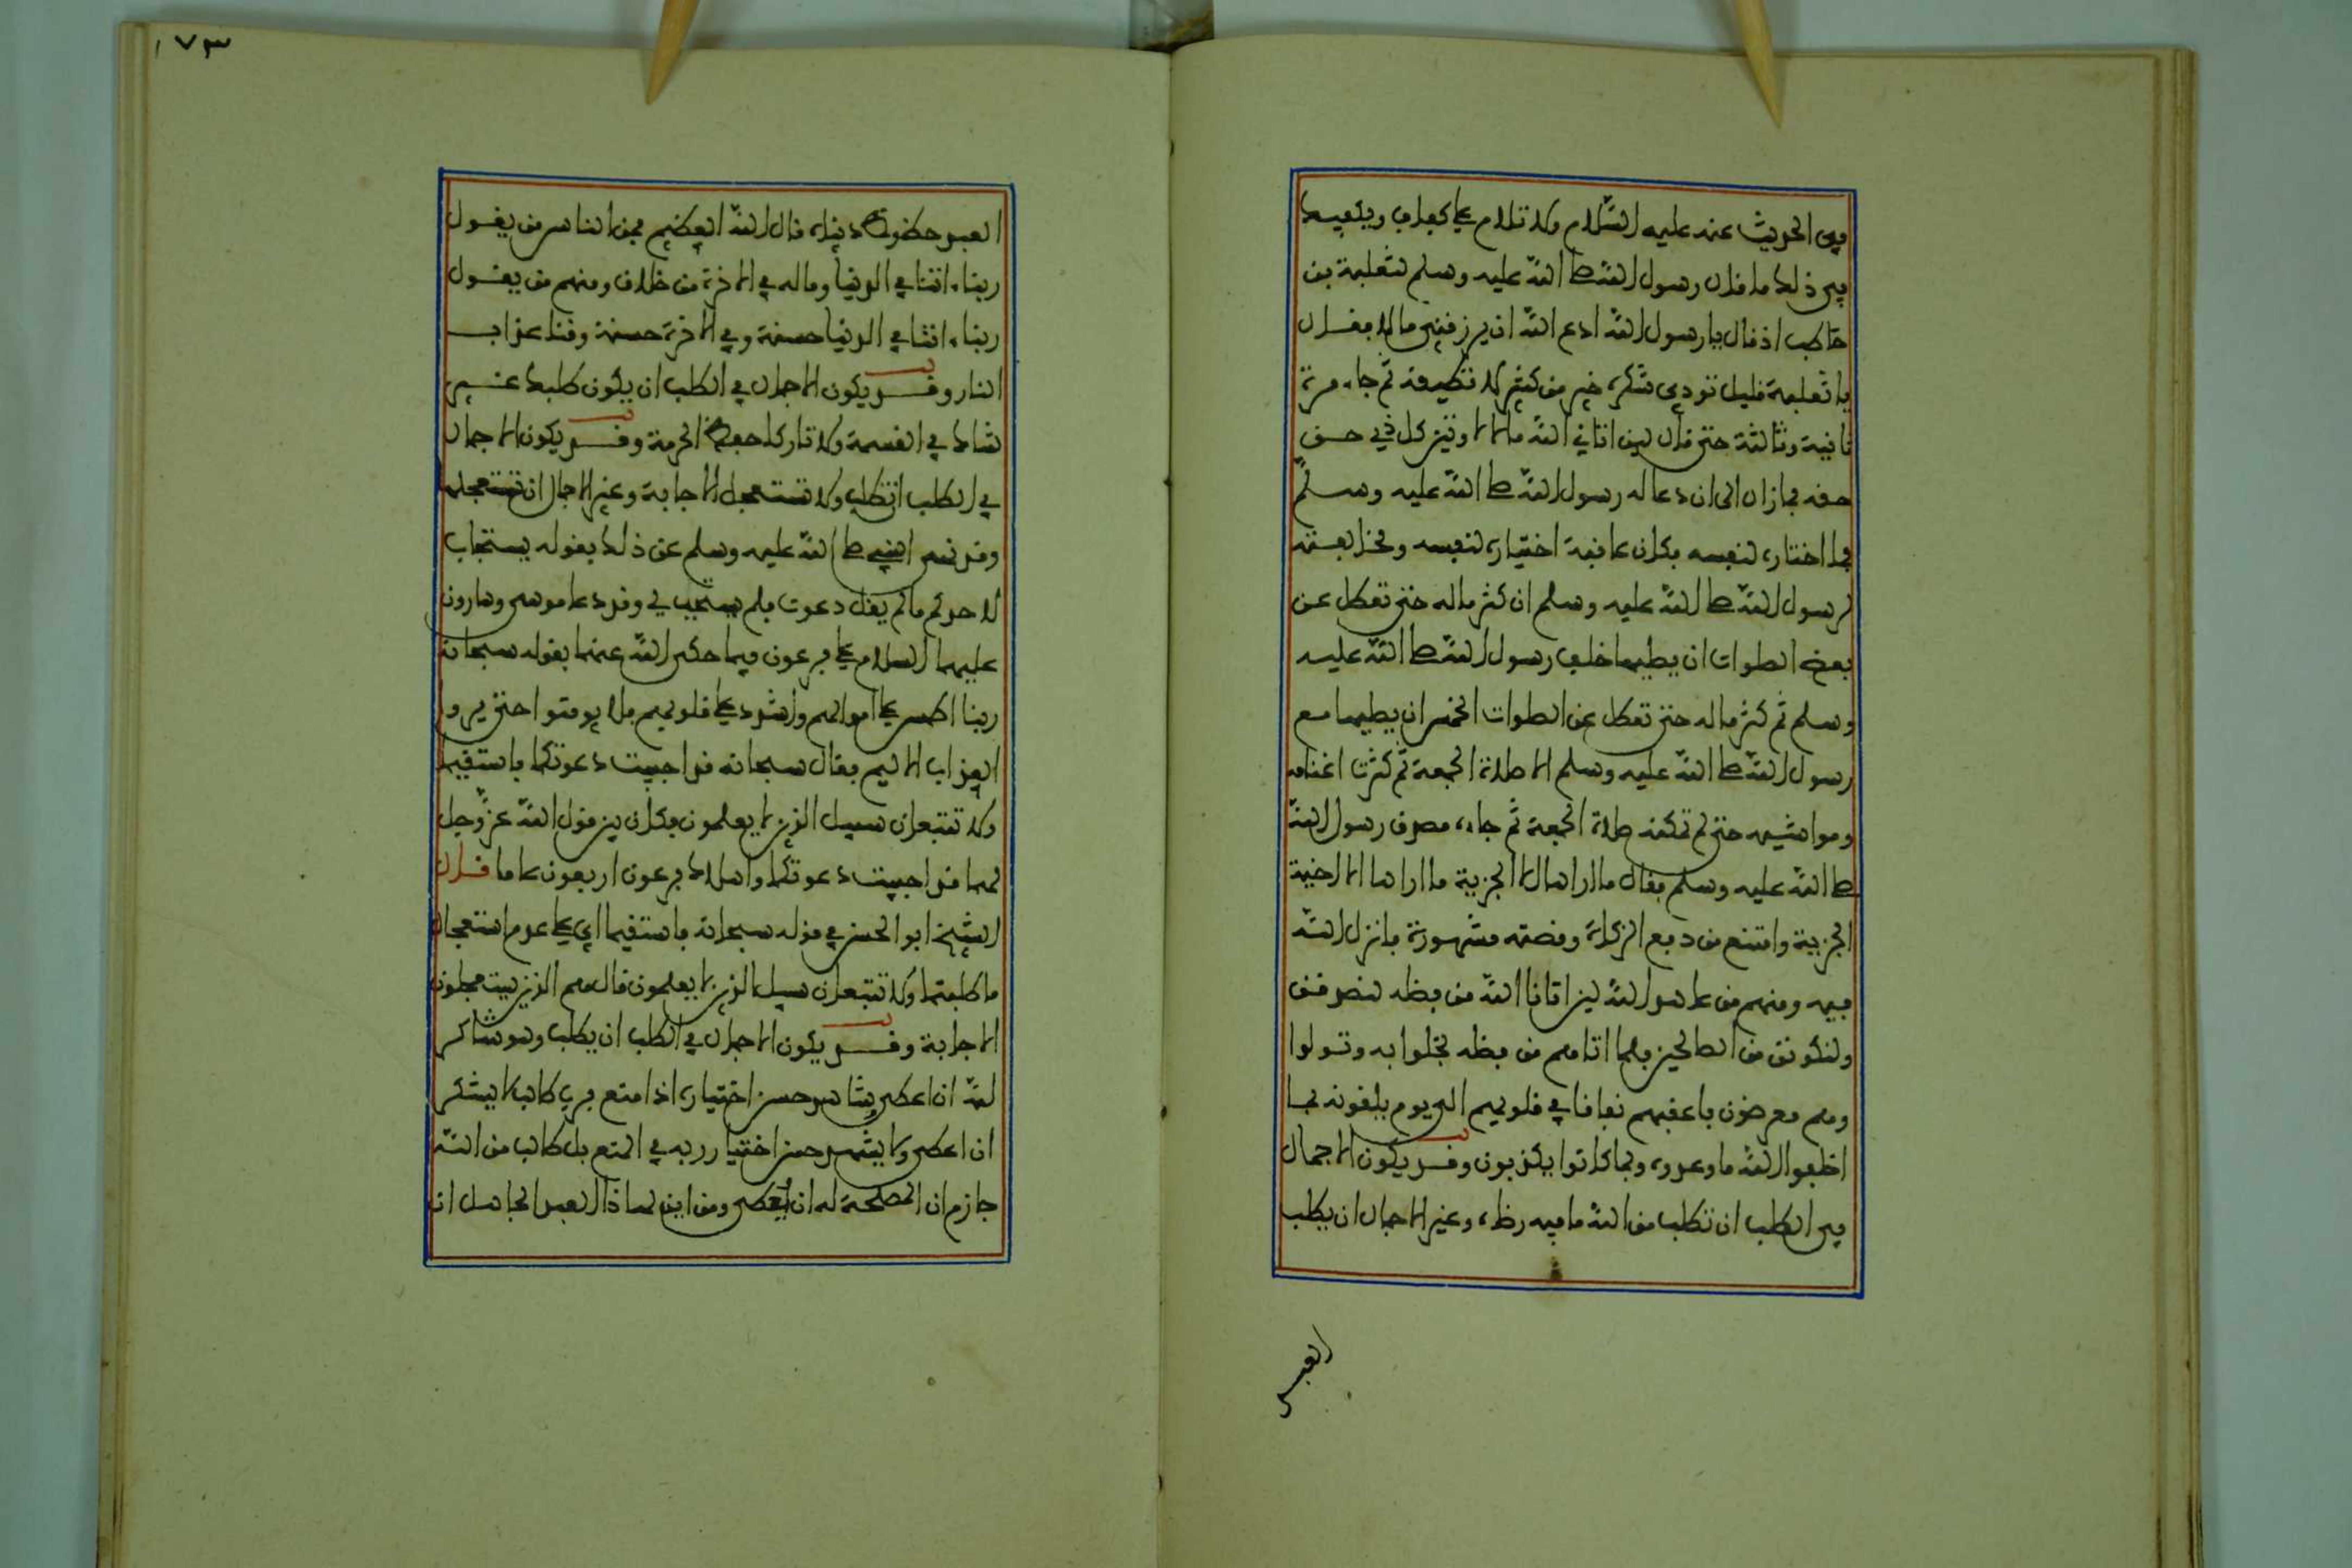 وفي الحديث عنه عليه السلام ولا تلام على كفاف ويكفيك
في ذلك ما قال رسول الله صلى الله عليه وسلم لثعلبة بن
حاطب اذ قال يا رسول الله ادع الله ان يرزقني مالا فقال
يا ثعلبة قليل تودي شكره خير من كثير لا تطيقه ثم جاءه مرة
ثانية وثالثة حتى قال لين اتاني الله مالا لاوتين كل ذي حق
حقه فما زال الى ان دعا له رسول الله صلى الله عليه وسلم
بما اختاره لنفسه فكان عاقبة اختياره لنفسه ومخالفته
لرسول الله صلى الله عليه وسلم ان كثر ماله حتى تعطل عن
بعض الصلوات ان يصليها خلف رسول الله صلى الله عليه
وسلم ثم كثر ماله حتى تعطل عن الصلوات الخمس ان يصليها مع
رسول الله صلى الله عليه وسلم الا صلاة الجمعة ثم كثرت اغنامه
ومواشيه حتى لم تمكنه صلاة الجمعة ثم جاءه مصدق رسول الله
صلى الله عليه وسلم فقال ما اراها الا الجزية ما اراها الا اخية
الجزية وامتنع من دفع الزكاة وقصته مشهورة فانزل الله
فيه ومنهم من عاهد الله لين اتانا الله من فضله لنصدقن
ولنكونن من الصالحين فلما اتاهم من فضله بخلوا به وتولوا
وهم معرضون فاعقبهم نفاقا في قلوبهم الى يوم يلقونه بما
اخلفوا الله ما وعدوه وبما كانوا يكذبون وقد يكون الاجمال
في الطلب ان تطلب من الله ما فيه رضاه وغير الاجمال ان يطلب
العبد
١٧٣
العبد حظوظ دنياه قال الله العظيم فمن الناس من يقول
ربنا ءاتنا في الدنيا وماله في الاخرة من خلاق ومنهم من يقول
ربنا ءاتنا في الدنيا حسنة وفي الاخرة حسنة وقنا عذاب
النار وقد يكون الاجمال في الطلب ان يكون طلبك غير
شاك في القسمة ولا تاركا حفظ الحرمة وقد يكون الاجمال
في الطلب ان تطلب ولا تستعجل الاجابة وغير الاجمال ان تستعجلها
وقد نهى النبي صلى الله عليه وسلم عن ذلك بقوله يستجاب
لاحدكم ما لم يقل دعوت فلم يستجب لي وقد دعا موسى وهارون
عليهما السلام على فرعون فيما حكى الله عنهما بقوله سبحانه
ربنا اطمس على اموالهم واشدد على قلوبهم فلا يومنوا حتى يروا
العذاب الاليم فقال سبحانه قد اجيبت دعوتكما فاستقيما
ولا تتبعان سبيل الذين لا يعلمون فكان بين قول الله عز وجل
لهما قد اجيبت دعوتكما واهلاك فرعون اربعون عاما قال
الشيخ ابو الحسن في قوله سبحانه فاستقيما اي على عدم استعجال
ما طلبتما ولا تتبعان سبيل الذين لا يعلمون قال هم الذين يستعجلون
الاجابة وقد يكون الاجمال في الطلب ان يطلب وهو شاكر
لله ان اعطى وشاهد حسن اختياره اذا منع فرب طالب لا يشكر
ان اعطى ولا يشهد حسن اختيار ربه في المنع بل طالب من الله
جازم ان المصلحة له ان يعطى ومن اين لهذا العبد الجاهل ان